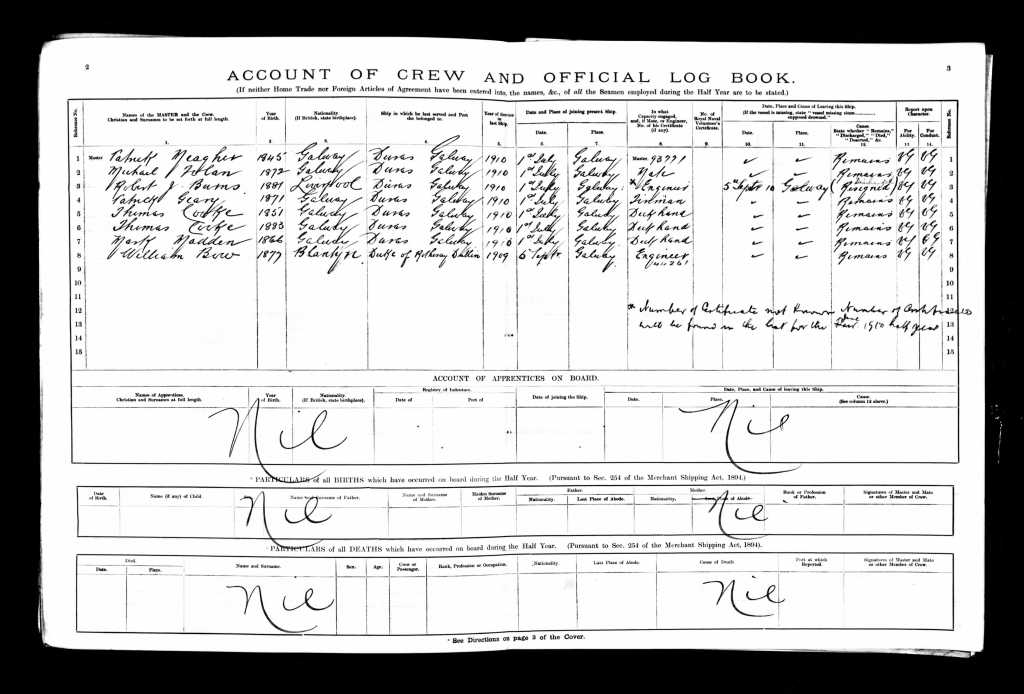 2
3
ACCOUNT OF CREW AND OFFICIAL LOG BOOK.
(If neither Home Trade nor Foreign Articles of Agreement have been entered into, the names, &c., of all the Seamen employed during the Half Year are to be stated.)
Reference No. Names of the MASTER and the Crew. Christian and Surnames to be set forth at full length. Year of Birth. Nationality. (If British, state birthplace). Ship in which he last served and Port she belonged to. Year of discharge last Ship. Date and Place of joining present Ship. Date. Place. In what Capacity engaged, and, if Mate, or Engineer, No. of his Certificate (if any). No. of Royal Naval Volunteer's Certificate. Date, Place and Cause of Leaving this Ship. (If the vessel is missing, state "vessel missing since supposed drowned." Date. Place. Cause. State whether "Remains," "Discharged," "Died," "Deserted," &c. Report upon Character. For Ability. For Conduct. Reference No.
1. 2. 3. 4. 5. 6. 7. 8. 9. 10. 11. 12. 13. 14.
1 Master Patrick Meagher 1845 Galway Duras Galway 1910 1st July Galway Master 93771 Remains VG VG 1
2 Michael Folan 1872 Galway Duras Galway 1910 1st July Galway Mate Remains VG VG 2
3 Robert J Burns 1881 Liverpool Duras Galway 1910 1st July Galway * Engineer 5th Septr 10 Galway Resigned VG VG 3
4 Patrick Geary 1871 Galway Duras Galway 1910 1st July Galway Fireman Remains VG VG 4
5 Thomas Cooke 1851 Galway Duras Galway 1910 1st July Galway Deck hand Remains VG VG 5
6 Thomas Cooke 1883 Galway Duras Galway 1910 1st July Galway Deck hand Remains VG VG 6
7 Mark Madden 1866 Galway Duras Galway 1910 1st July Galway Deck hand Remains VG VG 7
8 William Bow 1877 Blantyre Duke of Rothesay Dublin 1909 5 Septr Galway Engineer Remains VG VG 8
9 9
10 10
11 11
12 * Number of Certificate not known Number of 12
13 will be found in the list for the 1910 half year 13
14 14
15 15
ACCOUNT OF APPRENTICES ON BOARD.
Names of Apprentices. Christian and Surnames at full length. Year of Birth. Nationality. (If British, state birthplace). Registry of Indenture. Date of Port of Date of joining the Ship. Date, Place, and Cause of leaving this Ship. Date. Place. Cause. (See column 12 above.)
Nil Nil
* PARTICULARS of all BIRTHS which have occurred on board during the Half Year. (Pursuant to Sec. 254 of the Merchant Shipping Act, 1894.)
Date of Birth. Name (if any) of Child Name and Surname of Father. Name and Surname of Mother. Maiden Surname of Mother. Father. Nationality. Last Place of Abode. Mother Nationality. Place of Abode. Rank or Profession of Father. Signatures of Master and Mate or other Member of Crew.
Nil Nil
* PARTICULARS of all DEATHS which have occurred on board during the Half Year. (Pursuant to Sec. 254 of the Merchant Shipping Act, 1894).
Died. Date. Place. Name and Surname. Sex. Age. Crew or Passenger. Rank, Profession or Occupation. Nationality Last Place of Abode. Cause of Death Port at which Reported. Signatures of Master and Mate or other Member of Crew.
Nil Nil
* See Directions on page 3 of the Cover.